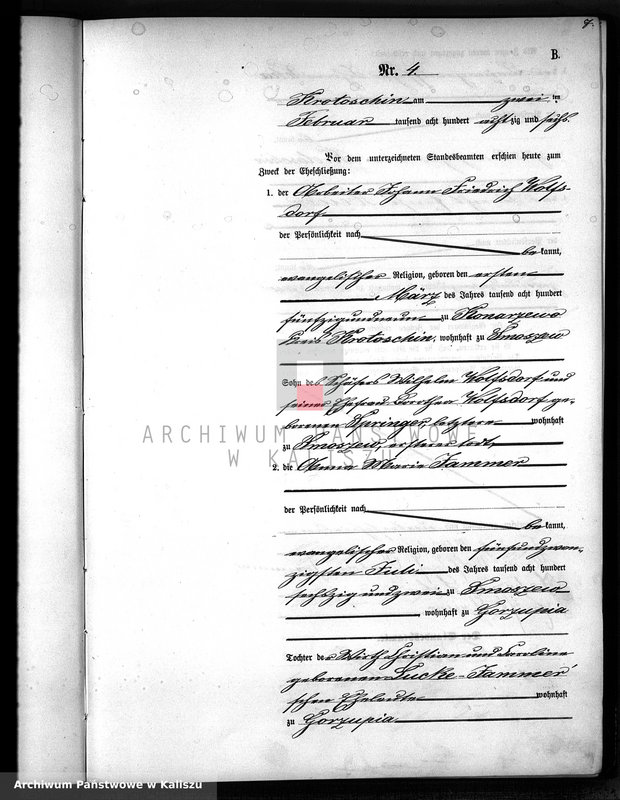 7.
B.
Nr. 4.
Krotoschin am zwei ten
Februar tausend acht hundert acht zig und sechs.
Vor dem unterzeichneten Standesbeamten erschien heute zum
Zweck der Eheschließung:
1. der Arbeiter Johann Friedrich Wolfs-
dorf
der Persönlichkeit nach
be kannt,
evangelischer Religion, geboren den ersten
März des Jahres tausend acht hundert
fünfzigundneun zu Konarzewo
Kreis Krotoschin, wohnhaft zu Smoszew
Sohn des Schäfers Wilhelm Wolfsdorf und
seiner Ehefrau Dorothea Wolfsdorf ge-
borenen Springer letztere wohnhaft
zu Smoszew, ersterer todt,
ARCHIWUM PAŃSTWOWE
W KALISZU
2. die Anna Maria Jammer
der Persönlichkeit nach
be kannt,
evangelischer Religion, geboren den fünfundzwan-
zigsten Juli des Jahres tausend acht hundert
sechszig undzwei zu Smoszew
, wohnhaft zu Gorzupia
Tochter der Wirth Christian und Caroline
geborenen Lucke-Jammer'
schen Eheleute wohnhaft
zu Gorzupia
Archiwum Państwowe w Kaliszu